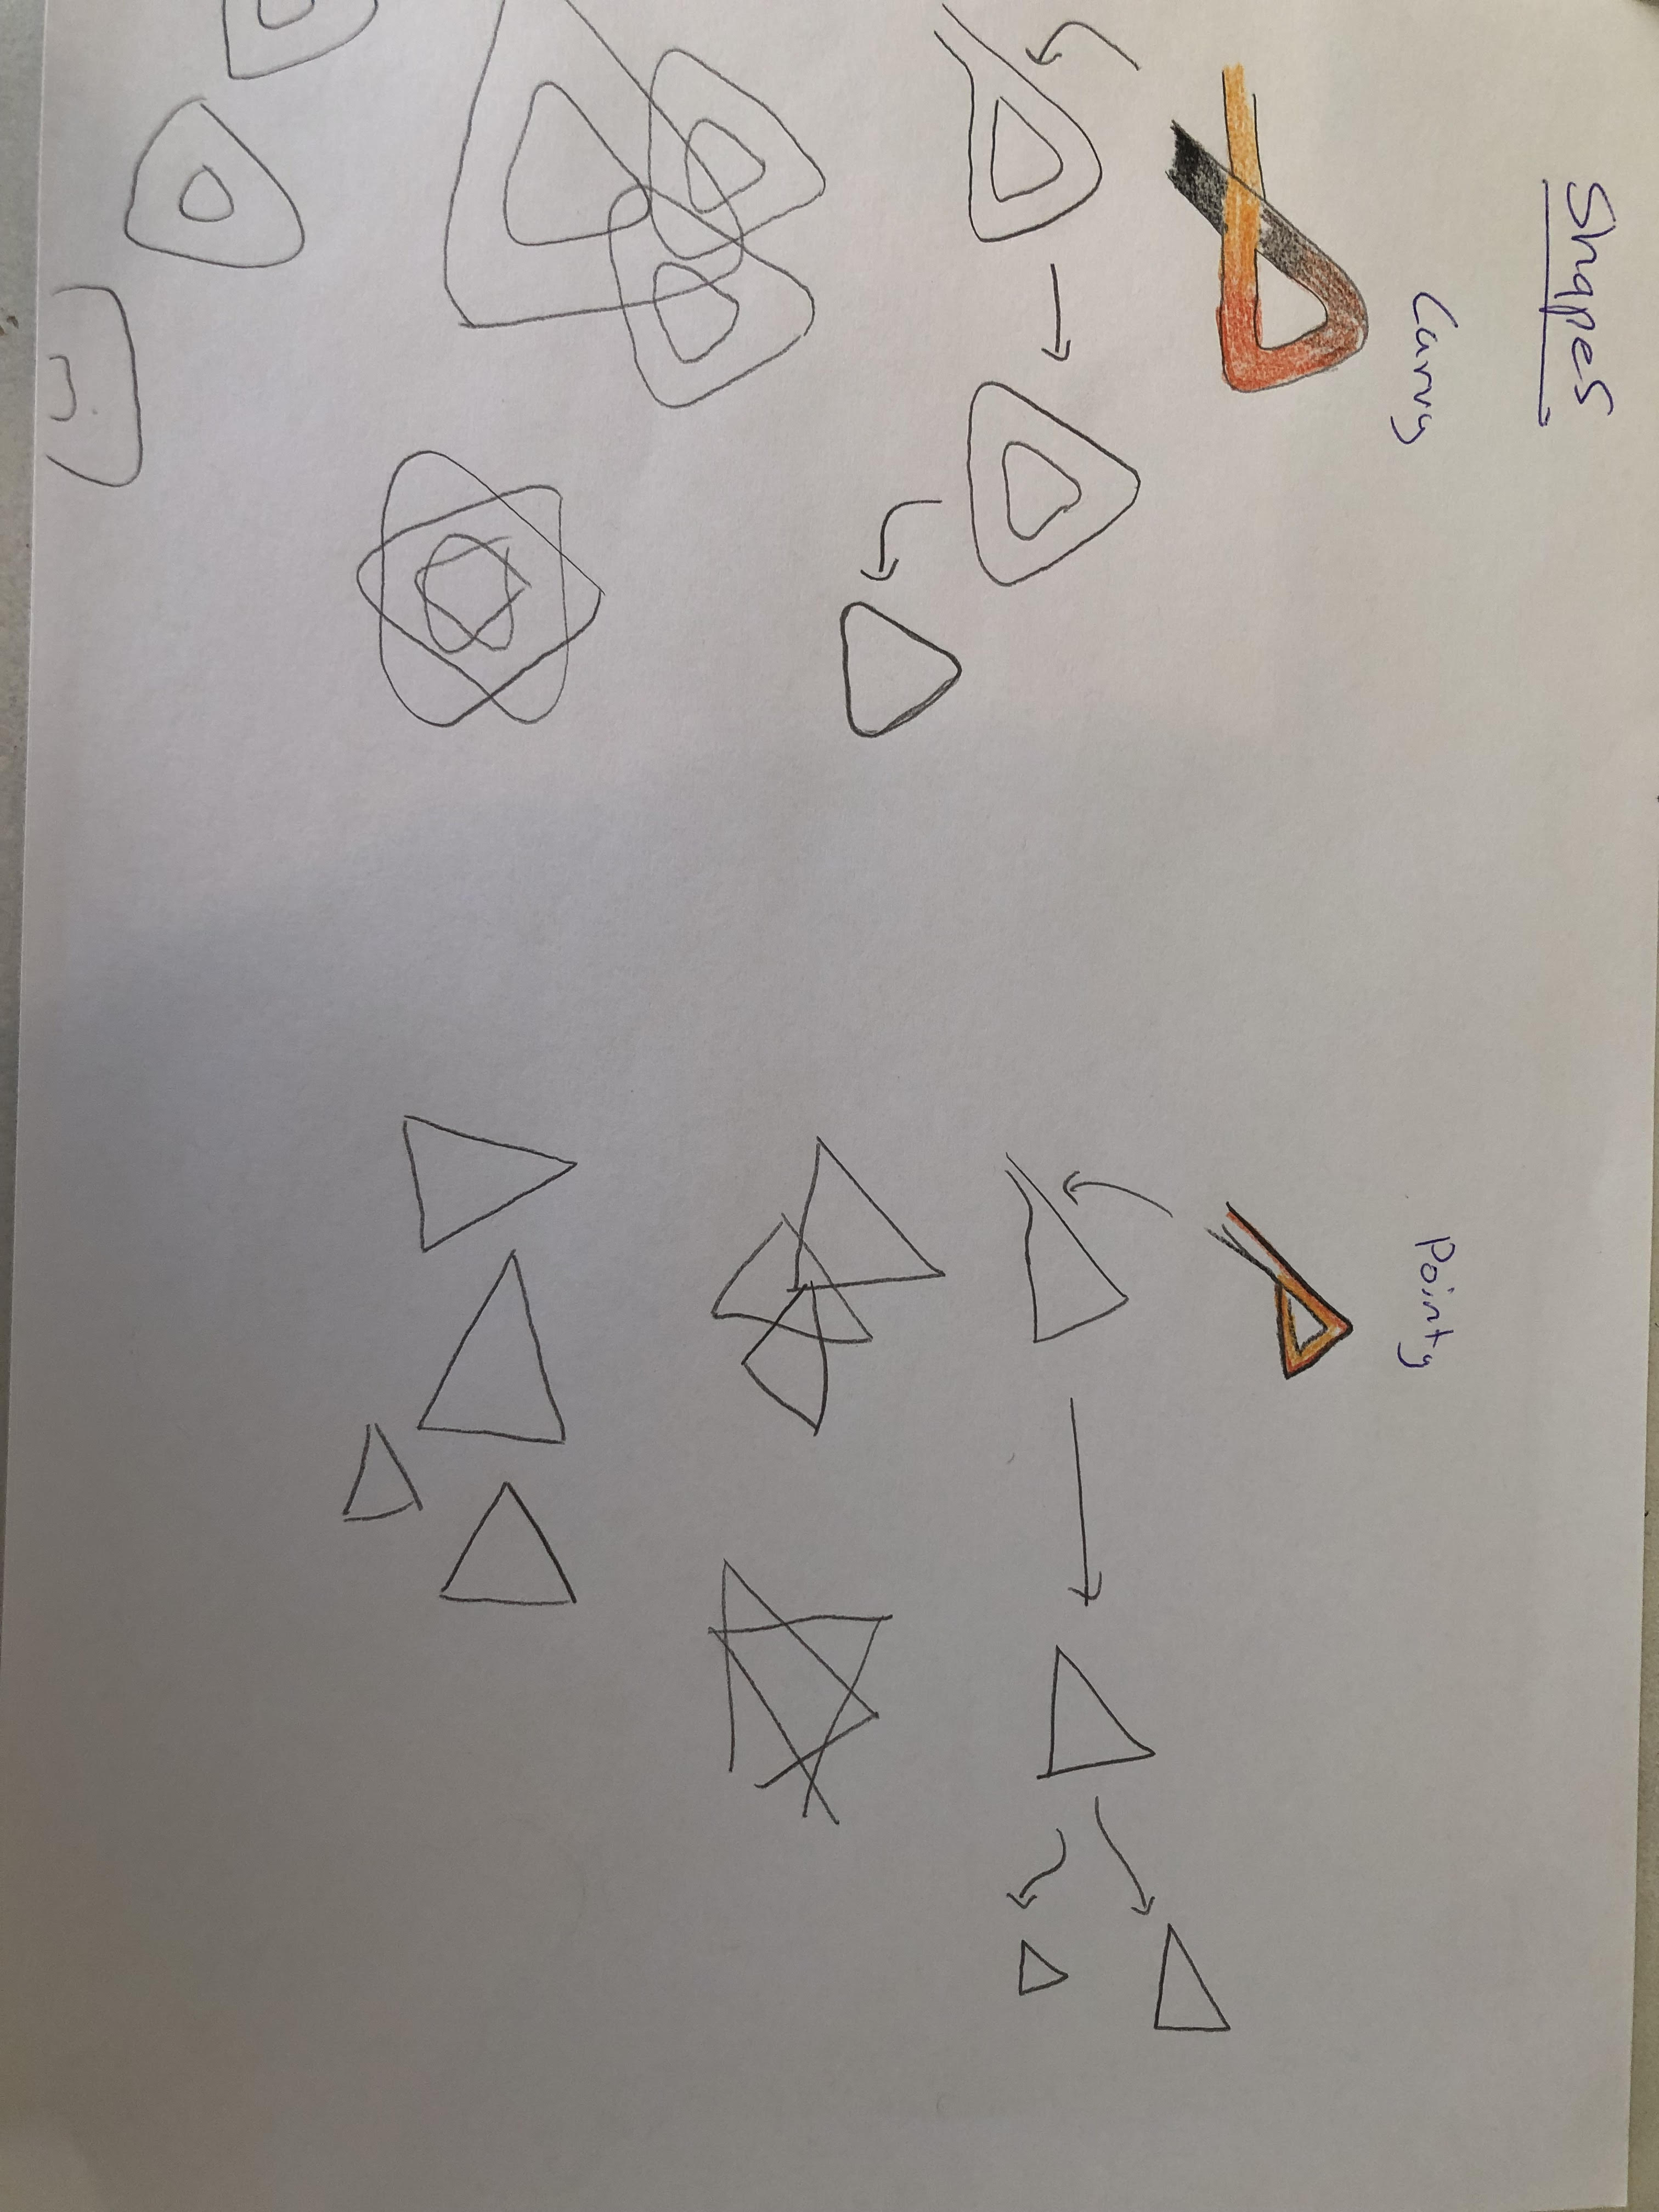 Shapes
Curvy
Pointy